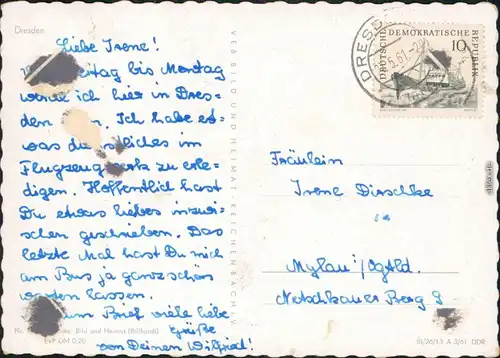 Dresden
Liebe Irene!
Freitag bis Montag
werde ich hier in Dres-
den sein. Ich habe et-
was dienstliches im
Flugzeugwerk zu erle-
digen. Hoffentlich hast
Du etwas liebes inzwi-
schen geschrieben. Das
letzte Mal hast Du mich
am Bus ja ganz schön
warten lassen.
zum Brief viele liebe
Grüße
von Deinem Wilfried!
VEB BILD UND HEIMAT REICHENBACH I. V.
Bild und Heimat (Billhardt)
EVP DM 0,20
DRESD
5.61.-2
DEUTSCHE DEMOKRATISCHE REPUBLIK
10
Fräulein
Irene Dirschke
Mylau/Vgtld.
Netschkauer Berg
III/26/13 A 3/61 DDR